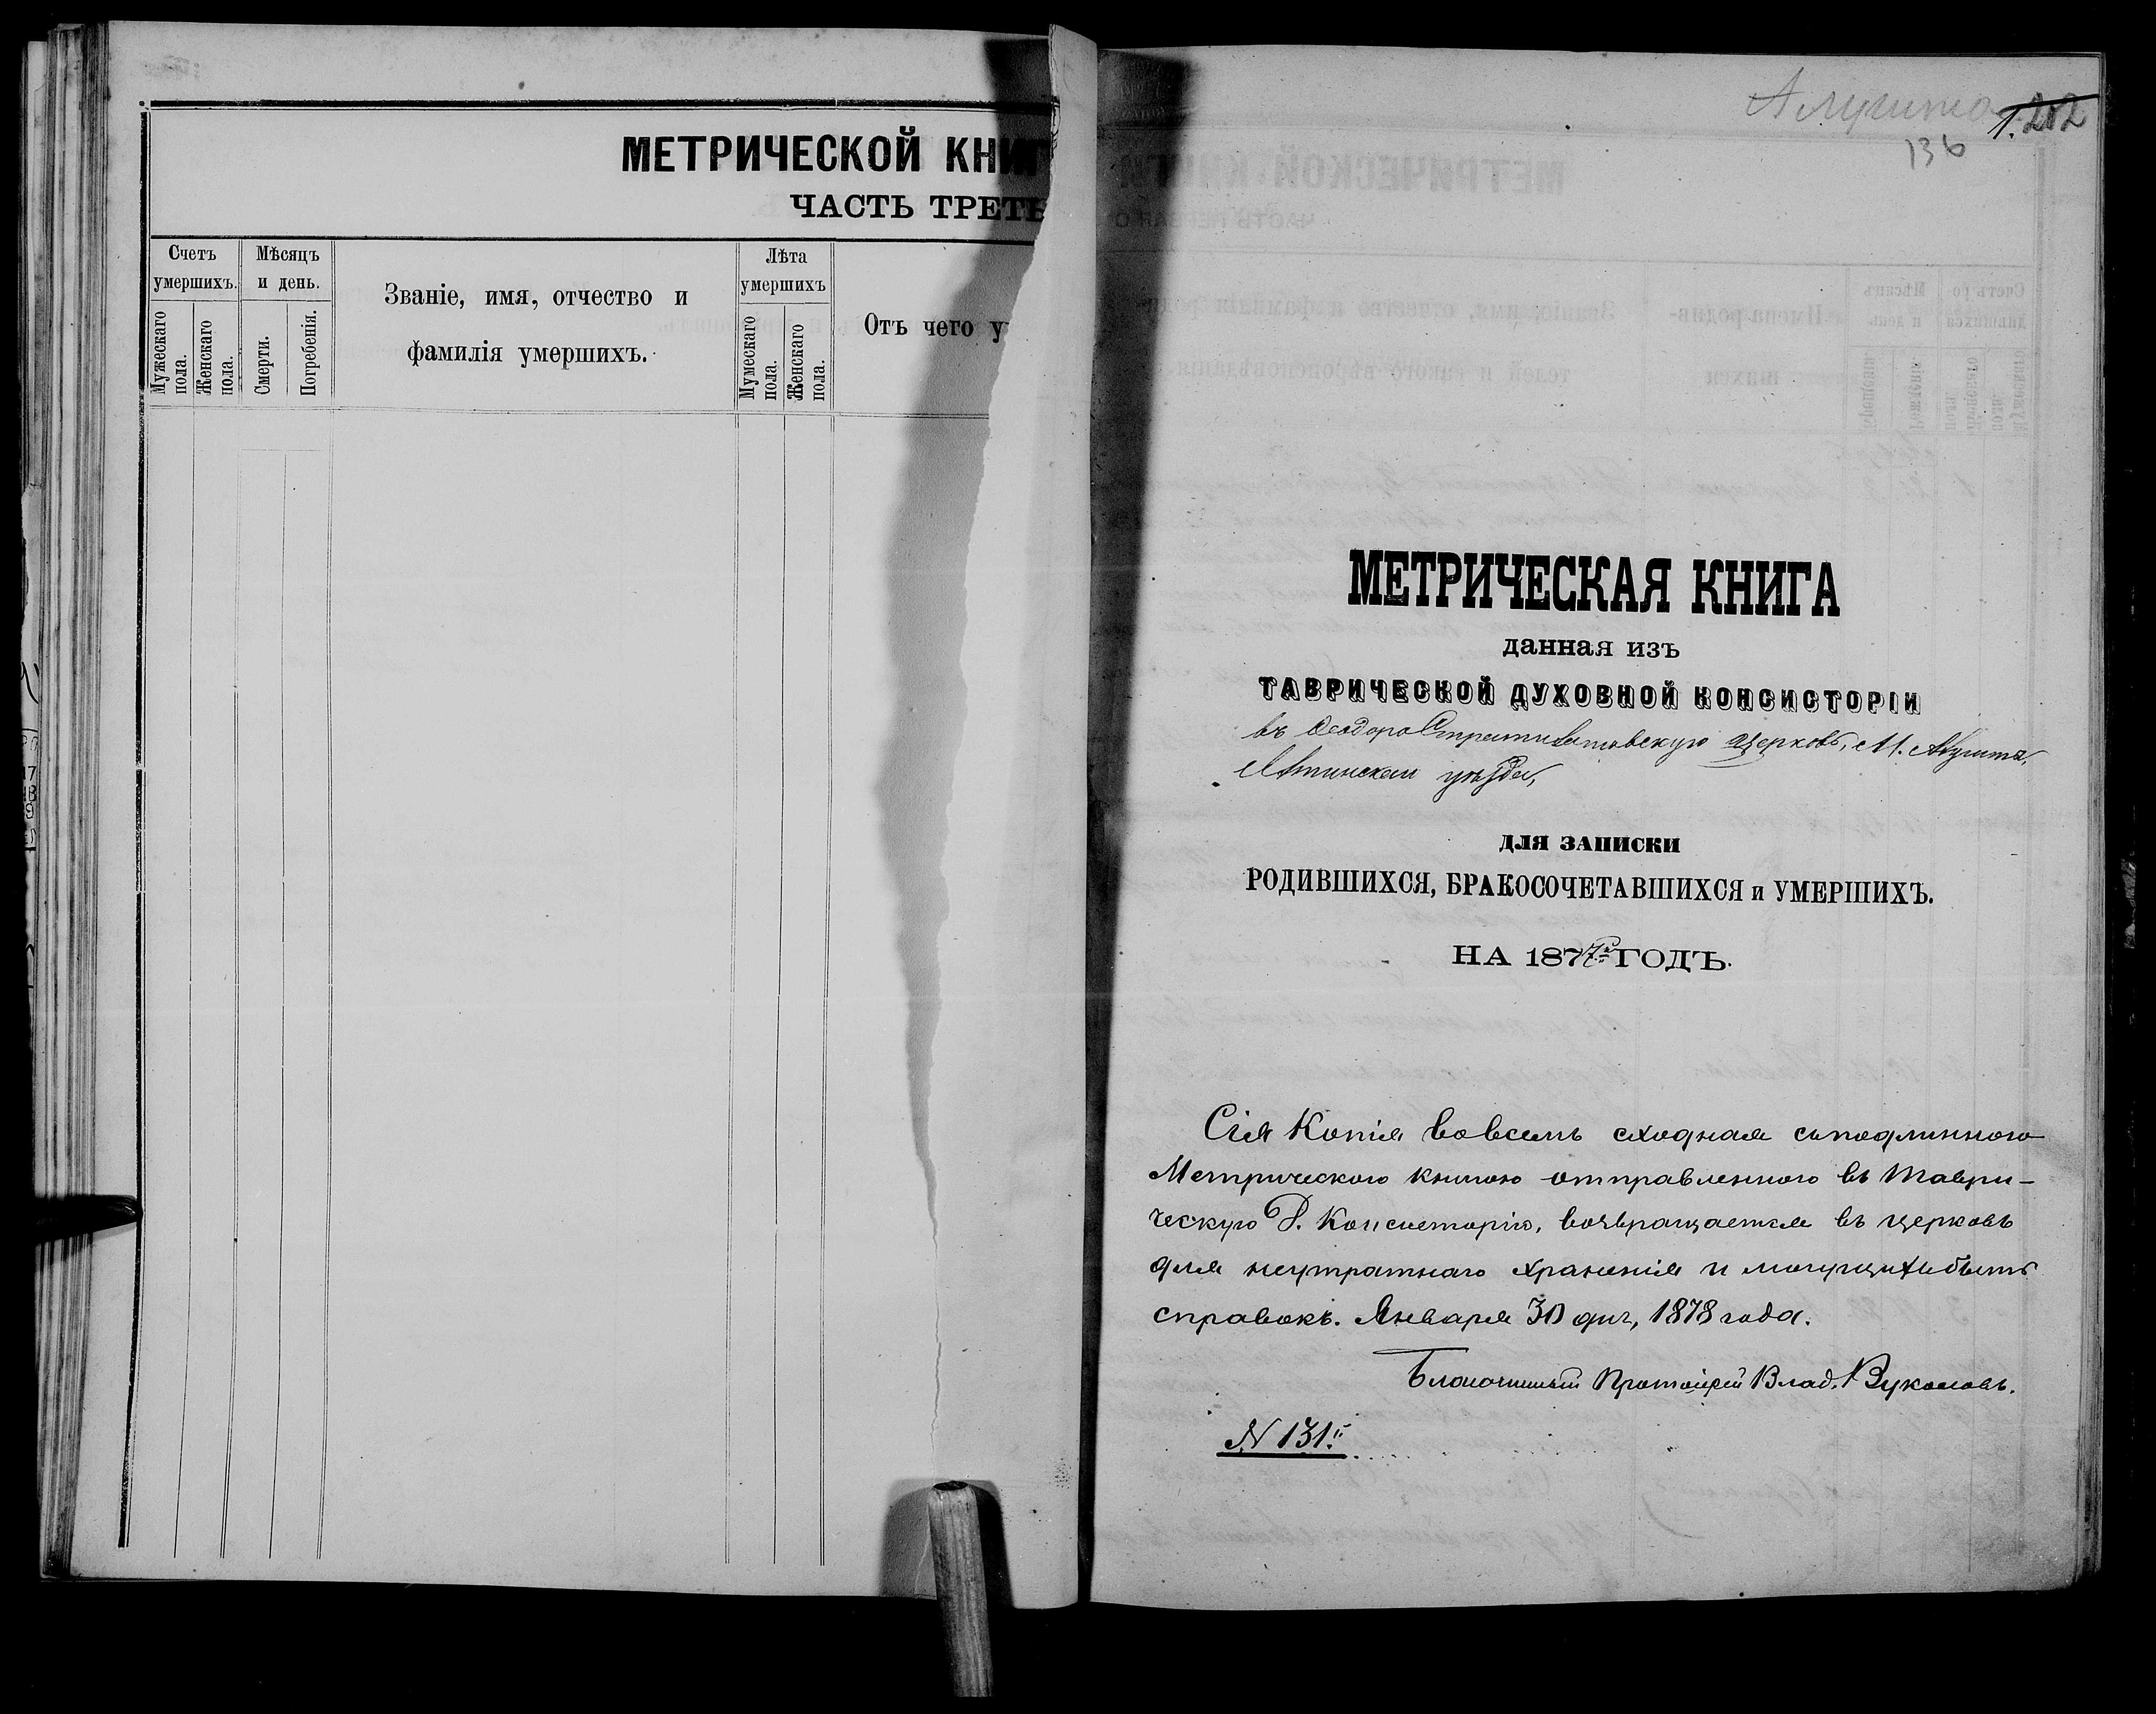 МЕТРИЧЕСКОЙ КНИГ
ЧАСТЬ ТРЕТЬ
Счетъ умершихъ.
Мужескаго пола.
Женскаго пола.
Мѣсяцъ и день.
Смерти.
Погребенія.
Званіе, имя, отчество и
фамилія умершихъ.
Лѣта умершихъ
Мумескаго пола.
Женскаго пола.
Отъ чего у
Алушта
1.202
136
МЕТРИЧЕСКАЯ КНИГА
данная изъ
ТАВРИЧЕСКОЙ ДУХОВНОЙ КОНСИСТОРІИ
въ Ѳеодоро Стратилатовскую церковь, М. Алушта,
Ялтинскаго уѣзда,
ДЛЯ ЗАПИСКИ
РОДИВШИХСЯ, БРАКОСОЧЕТАВШИХСЯ и УМЕРШИХЪ.
НА 1877й ГОДЪ.
Сія Копія вовсемъ сходная съподлинного
Метрического книгою отправленного въ Таври-
ческую Д. Консисторію, возвращается въ церковь
для неутратнаго храненія и могущихъбыть
справокъ. Января 30 дня, 1878 года.
Благочинный Протоіерей Влад.
N 131.